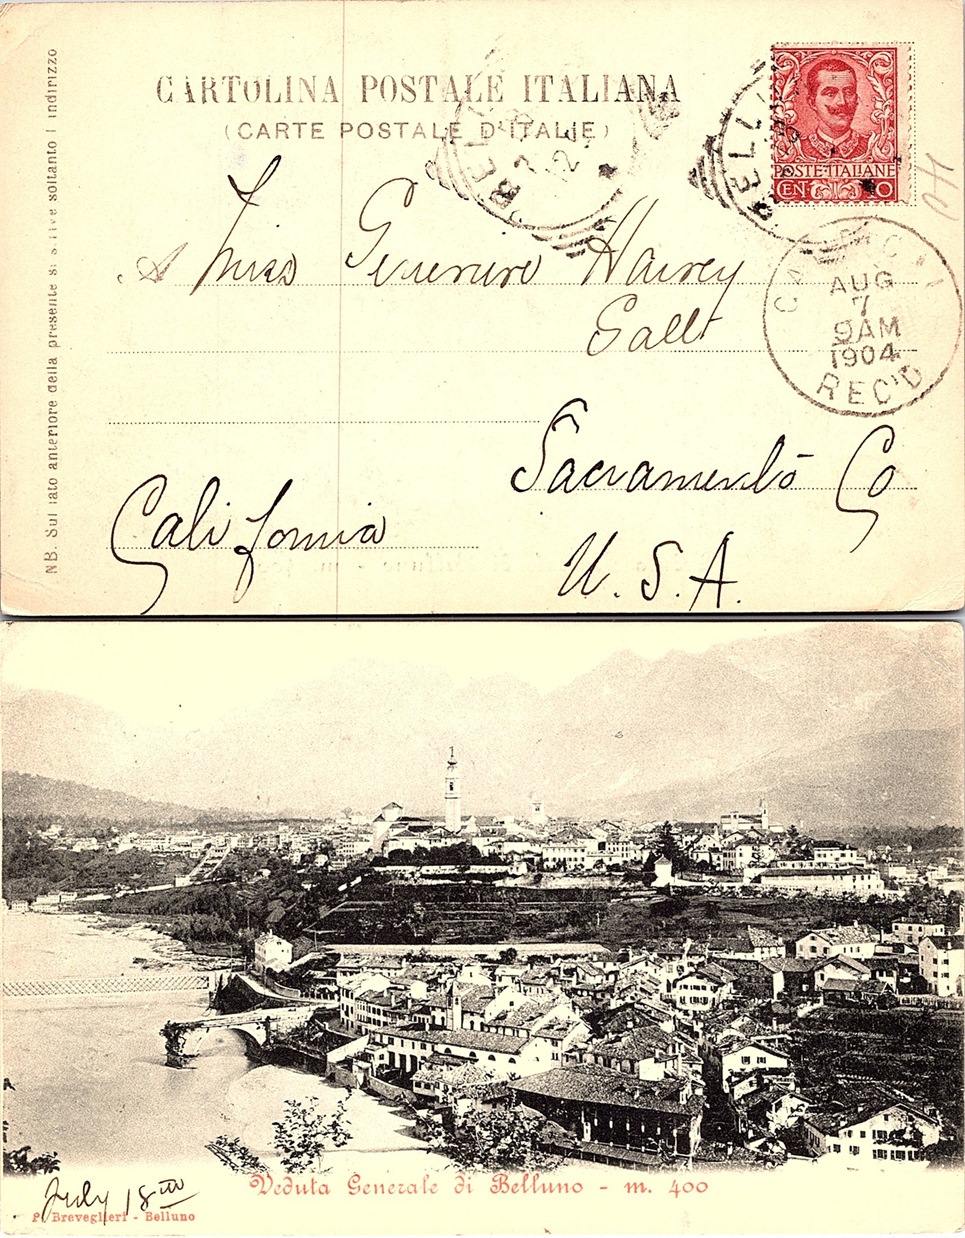 CARTOLINA POSTALE ITALIANA
(CARTE POSTALE D'ITALIE)
NB. Sul lato anteriore della presente si scrive soltanto l'indirizzo
POSTE·ITALIANE
CEN 10
BELL
BELL
AUG
7
9AM
1904
REC'D
Miss Genevieve Harvey
Galt
Sacramento Co
California
U.S.A.
Veduta Generale di Belluno - m. 400
July 18
P. Breveglieri - Belluno